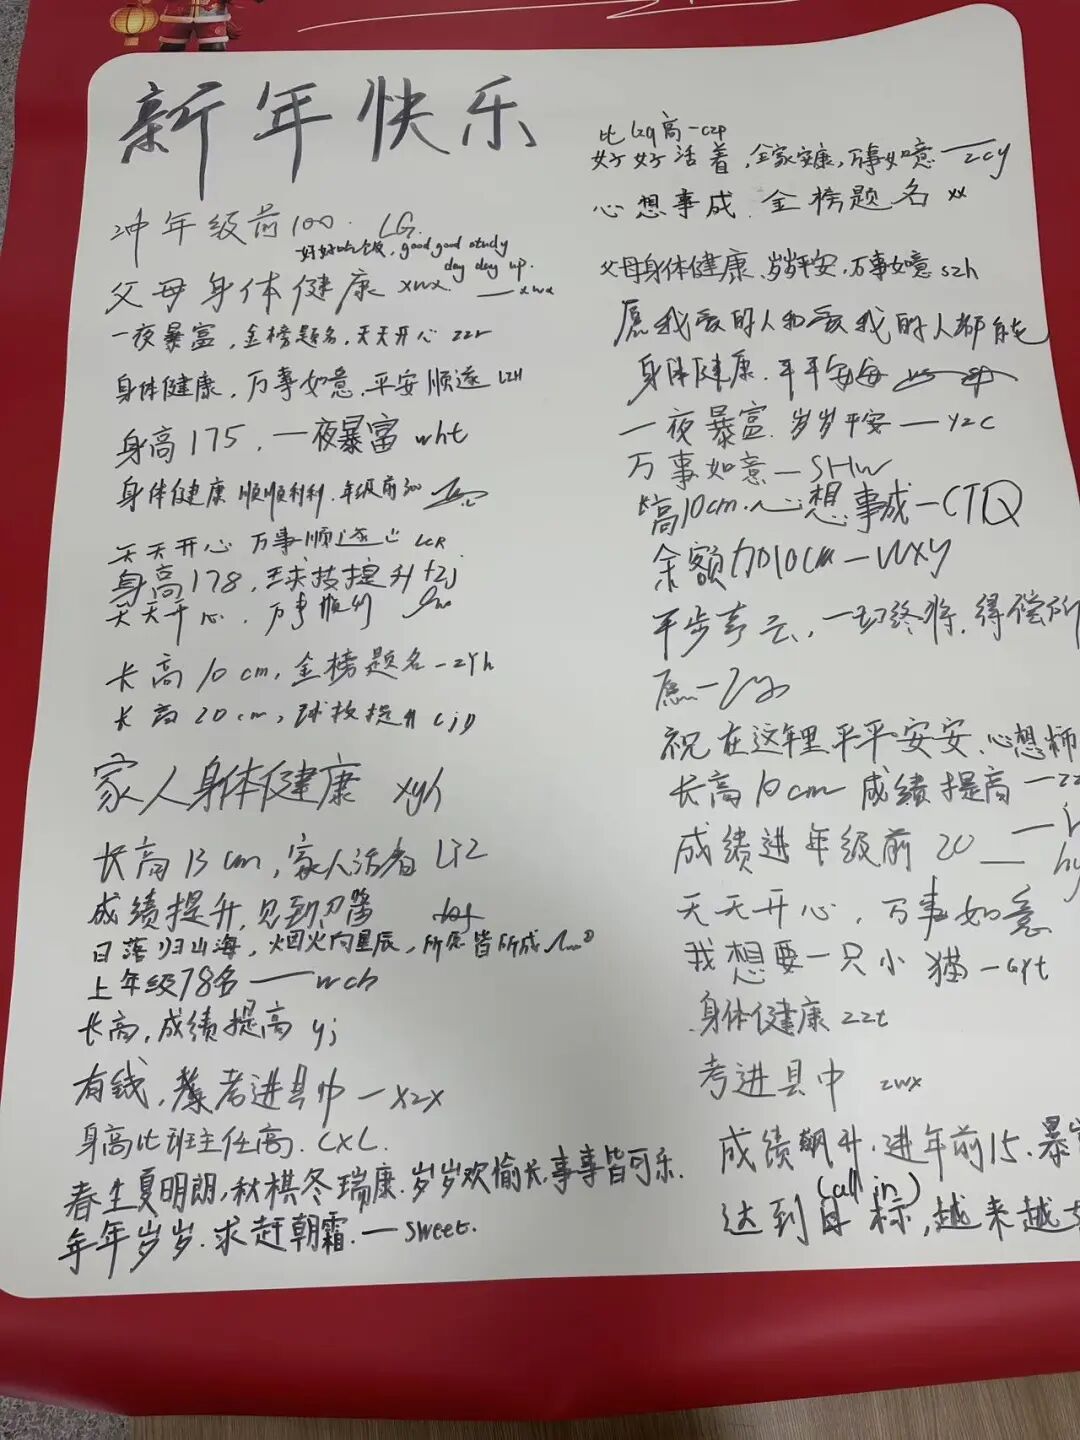 新年快乐
冲年级前100. LG.
好好吃饭, good good study
day day up.
父母身体健康 xwx ——xwx
一夜暴富, 金榜题名, 天天开心 zzr
身体健康, 万事如意, 平安顺遂 LZH
身高175, 一夜暴富 wht
身体健康 顺顺利利, 年级前
天天开心 万事顺遂 LCR
身高178, 球技提升 fzj
天天开心, 万事顺利
长高10cm, 金榜题名-zyh
长高20cm, 球技提升 cjp
家人身体健康 xyh
长高13cm, 家人活着 LJZ
成绩提升, 见到
日落归山海, 烟火向星辰, 所愿皆所成
上年级78名——wch
长高, 成绩提高 yj
有钱, 考进县中-xzx
身高比班主任高. CXL.
春生夏明朗, 秋棋冬瑞康. 岁岁欢愉长, 事事皆可乐.
年年岁岁. 求赶朝霜. —sweet.
比lzq高-czp
好好活着, 全家安康, 万事如意—zcy
心想事成, 金榜题名 xx
父母身体健康、岁岁平安, 万事如意 szh
愿我爱的人和爱我的人都能
身体健康, 平平安安
一夜暴富, 岁岁平安—yzc
万事如意—SHW
长高10cm. 心想事成-CTQ
余额加010cm-WXY
平步青云, 一切终将, 得偿所
愿-
祝在这年里平平安安、心想
长高10cm 成绩提高—
成绩进年级前20—
天天开心, 万事如意
我想要一只小猫-GYt
身体健康 zzt
考进县中 zwx
成绩飙升, 进年前15, 暴
(all in)
达到目标, 越来越